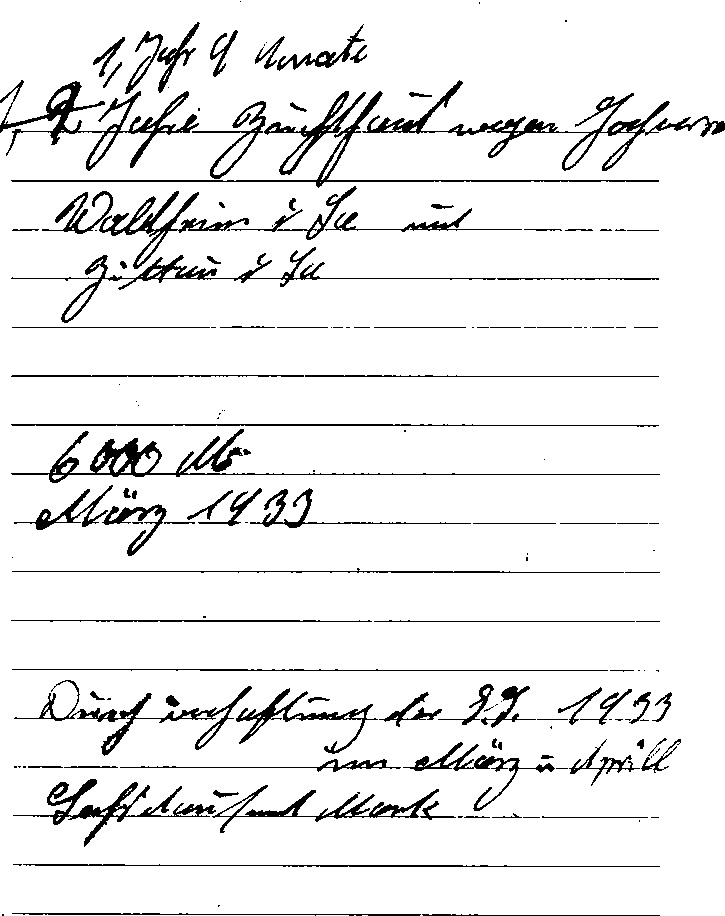 1, Jahr 9 Monate
1, 2 Jahre Zuchthaus wegen Hochverra
Waldheim i Sa und
Zittau i Sa
6000 M.
März 1933
Durch verhaftung der 1933
im März u Aprill
Sechstausend Mark